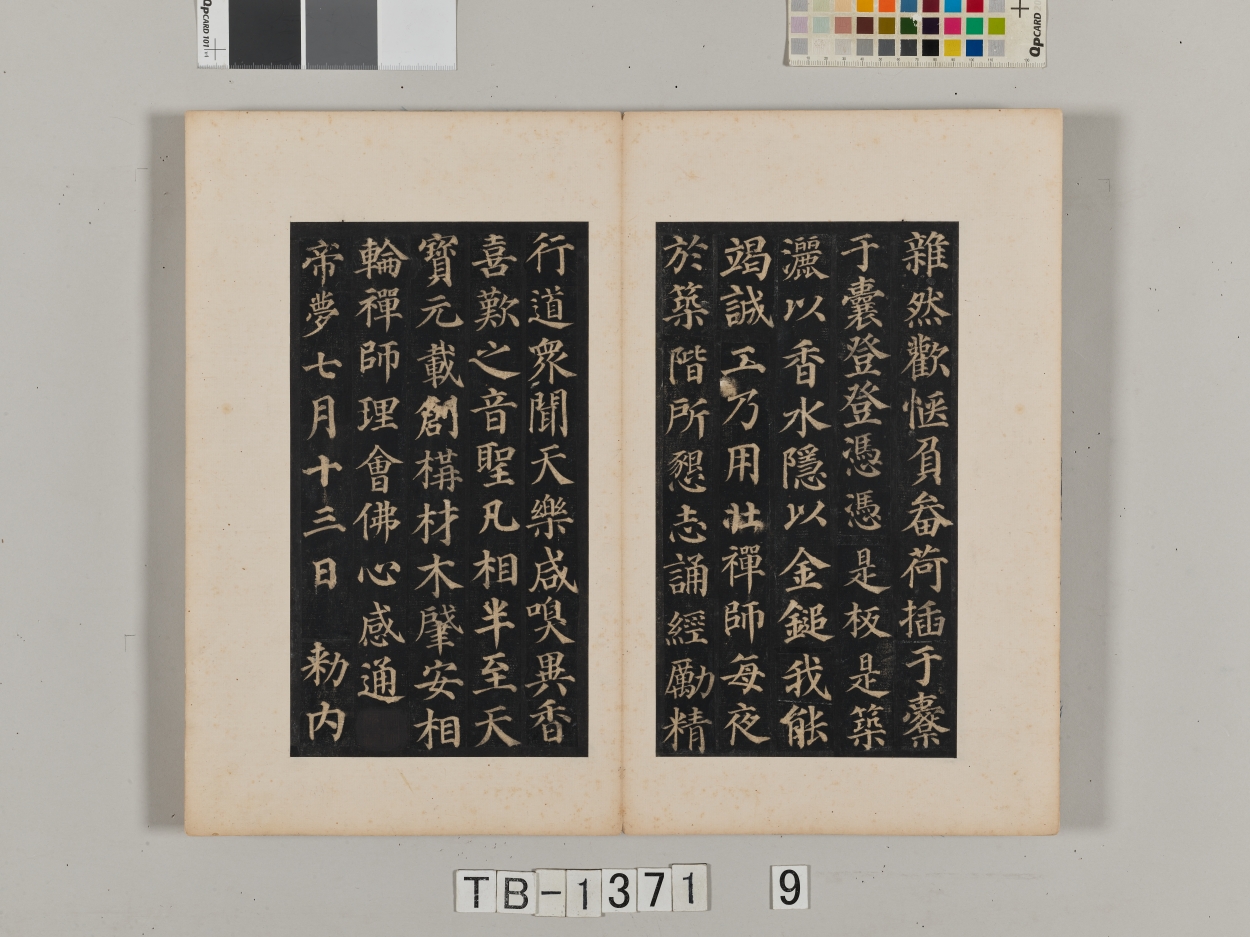 雜然歡愜負畚荷插于橐
于囊登登憑憑是板是築
灑以香水隱以金鎚我能
竭誠工乃用壯禪師每夜
於築階所懇志誦經勵精
行道衆聞天樂咸嗅異香
喜歎之音聖凡相半至天
寶元載創構材木肇安相
輪禪師理會佛心感通
帝夢七月十三日 勑内
QPCARD 101
QPCARD
TB-1371 9